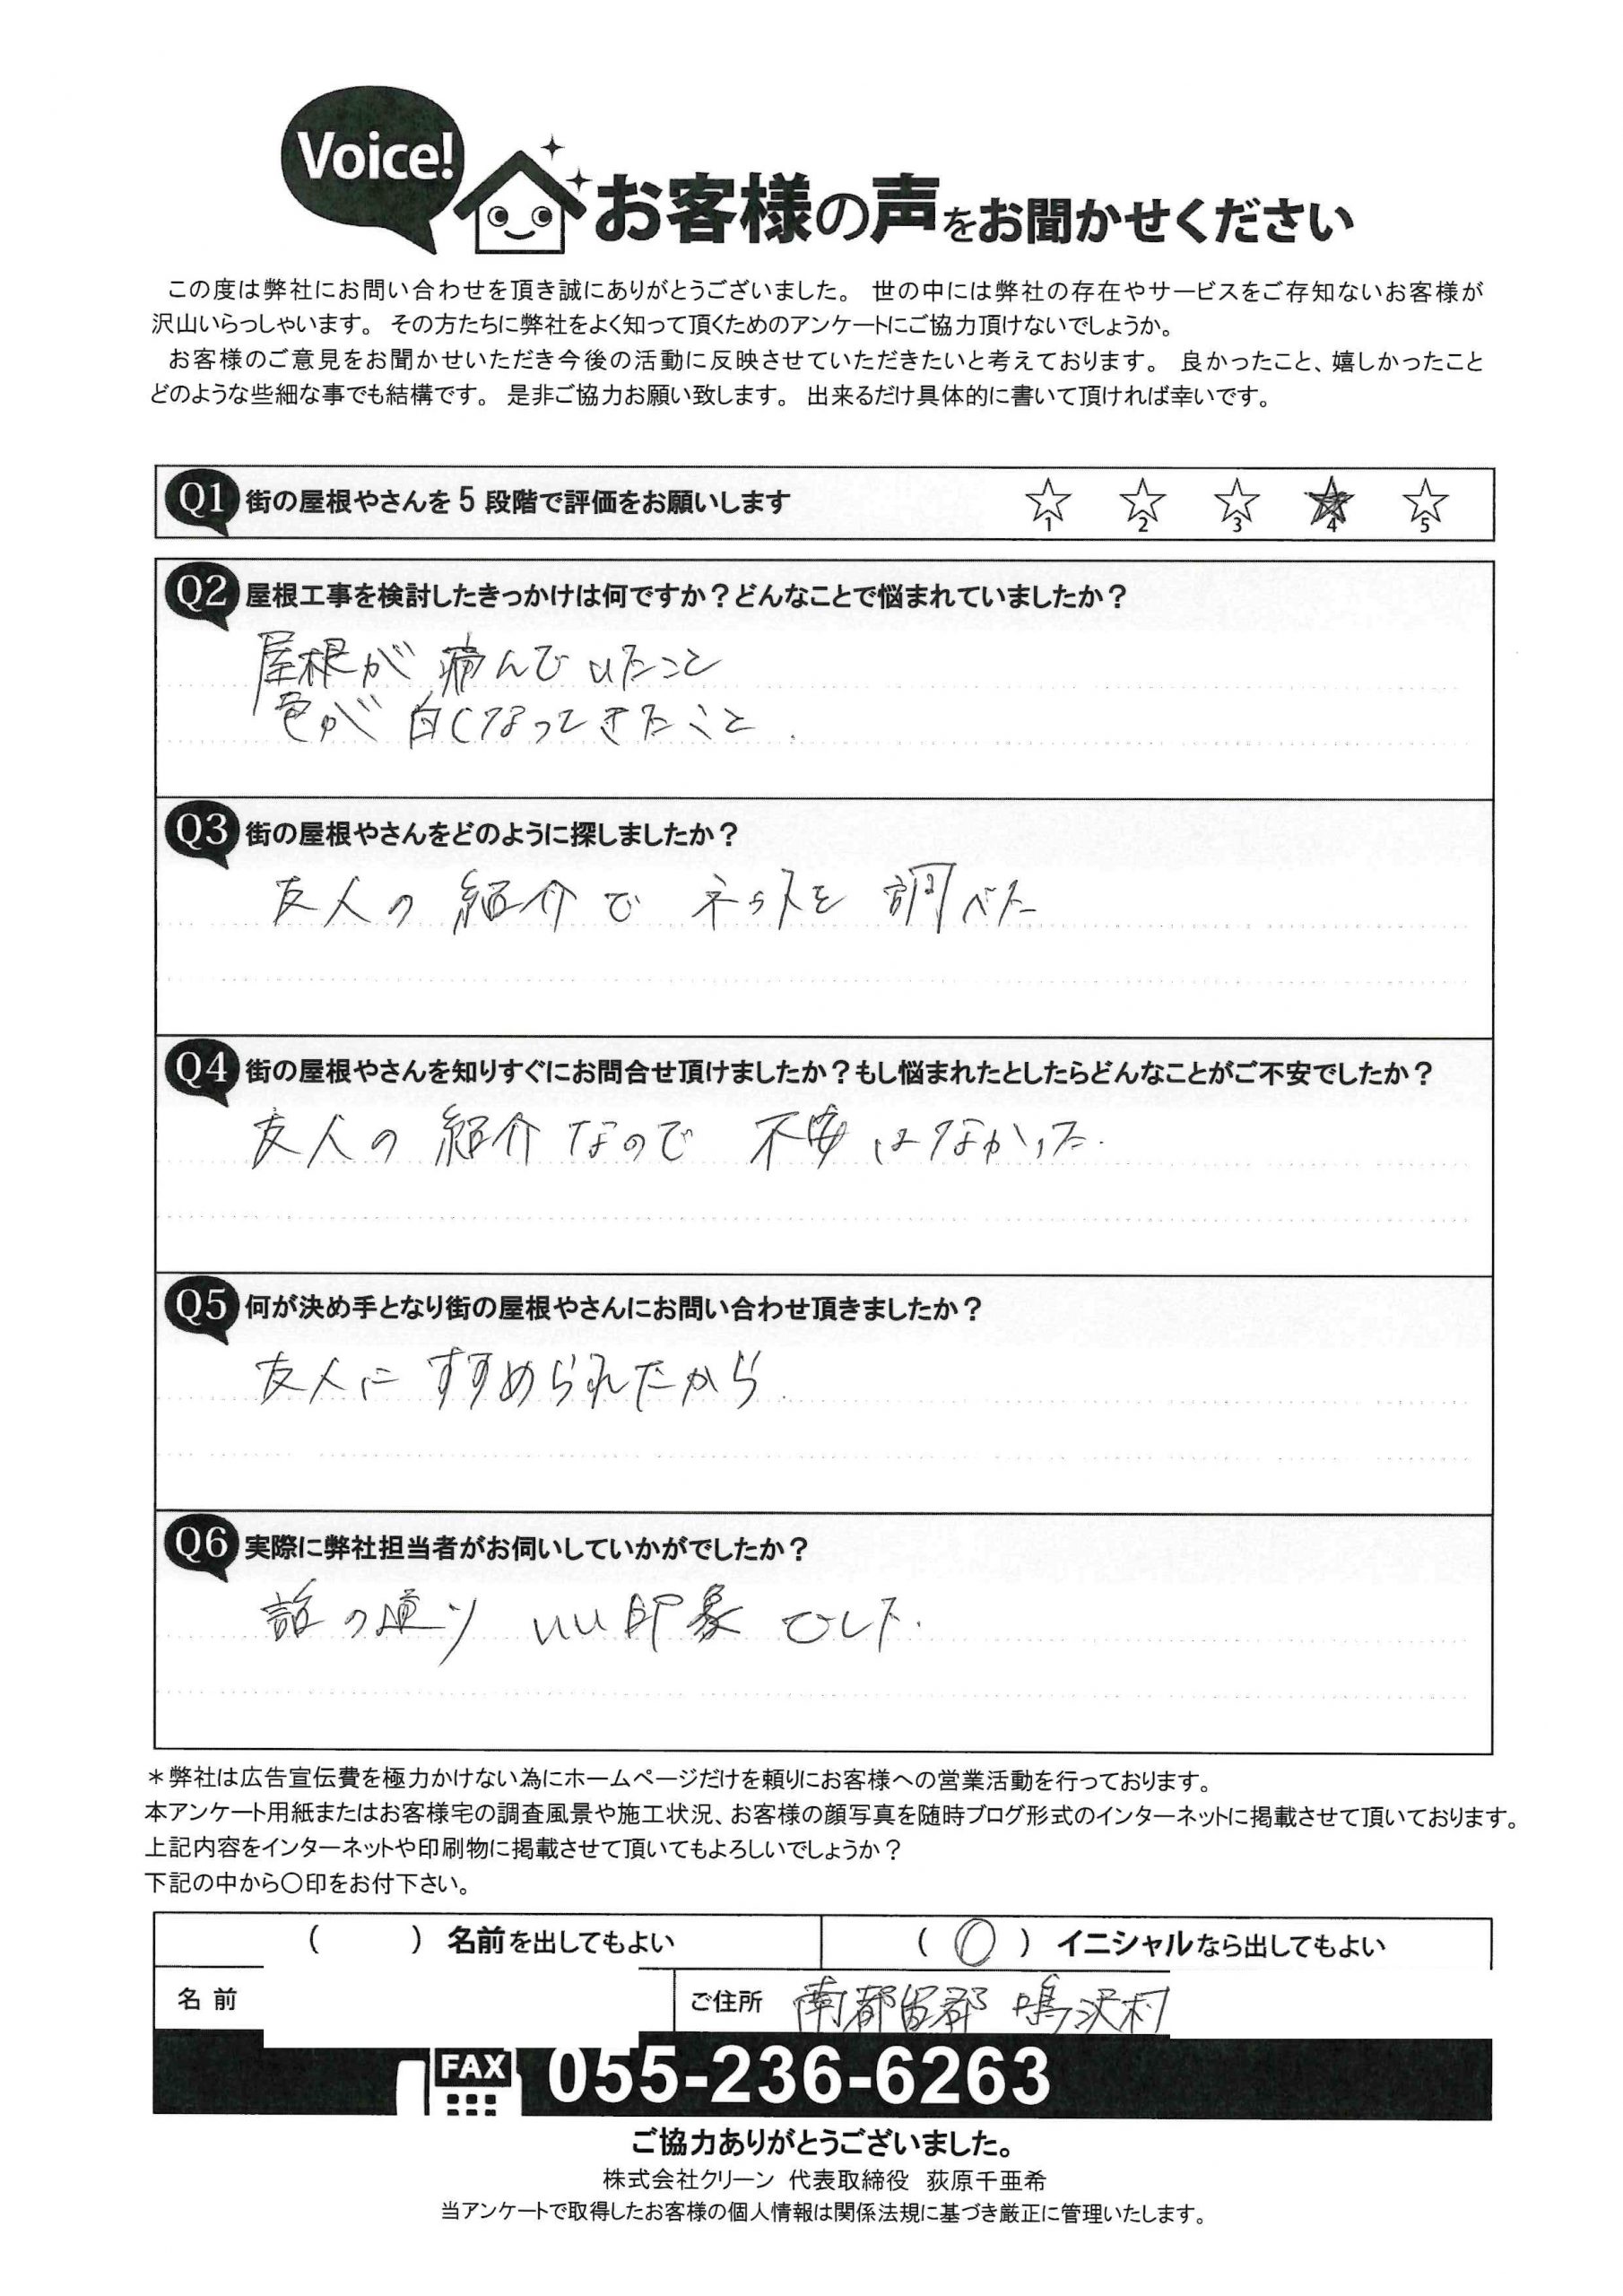 Voice!
お客様の声をお聞かせください
この度は弊社にお問い合わせを頂き誠にありがとうございました。 世の中には弊社の存在やサービスをご存知ないお客様が
沢山いらっしゃいます。 その方たちに弊社をよく知って頂くためのアンケートにご協力頂けないでしょうか。
お客様のご意見をお聞かせいただき今後の活動に反映させていただきたいと考えております。 良かったこと、嬉しかったこと
どのような些細な事でも結構です。 是非ご協力お願い致します。 出来るだけ具体的に書いて頂ければ幸いです。
Q1 街の屋根やさんを5段階で評価をお願いします ☆1 ☆2 ☆3 ★4 ☆5
Q2 屋根工事を検討したきっかけは何ですか？どんなことで悩まれていましたか？
屋根が 痛んでいたこと
色が 白くなってきたこと.
Q3 街の屋根やさんをどのように探しましたか？
友人の 紹介で ネットを 調べた
Q4 街の屋根やさんを知りすぐにお問合せ頂けましたか？もし悩まれたとしたらどんなことがご不安でしたか？
友人の 紹介なので 不安はなかった.
Q5 何が決め手となり街の屋根やさんにお問い合わせ頂きましたか？
友人に すすめられたから.
Q6 実際に弊社担当者がお伺いしていかがでしたか？
話の通り いい印象 でした.
＊弊社は広告宣伝費を極力かけない為にホームページだけを頼りにお客様への営業活動を行っております。
本アンケート用紙またはお客様宅の調査風景や施工状況、お客様の顔写真を随時ブログ形式のインターネットに掲載させて頂いております。
上記内容をインターネットや印刷物に掲載させて頂いてもよろしいでしょうか？
下記の中から〇印をお付下さい。
（　　）名前を出してもよい （〇）イニシャルなら出してもよい
名前 ご住所 南都留郡 鳴沢村
FAX 055-236-6263
ご協力ありがとうございました。
株式会社クリーン 代表取締役 荻原千亜希
当アンケートで取得したお客様の個人情報は関係法規に基づき厳正に管理いたします。